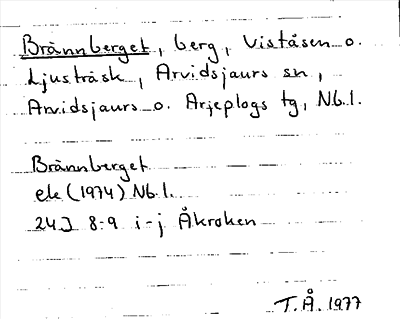 Brännberget, berg, Viståsen o.
Ljusträsk, Arvidsjaurs sn,
Arvidsjaurs o. Arjeplogs tg, Nb.l.
Brännberget
ek (1974) Nb.l.
24J 8-9 i-j Åkroken
T.Å. 1977